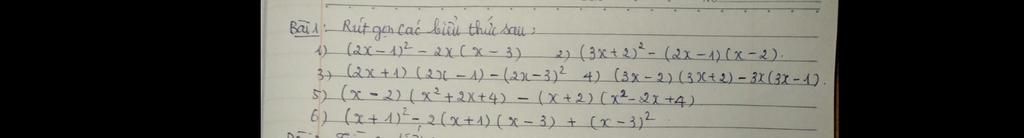 Bài 1: Rút gọn các biểu thức sau:
1) (2x-1)² - 2x(x-3) 2) (3x+2)² - (2x-1)(x-2).
3) (2x+1)(2x-1) - (2x-3)² 4) (3x-2)(3x+2) - 3x(3x-1).
5) (x-2)(x²+2x+4) - (x+2)(x²-2x+4)
6) (x+1)² - 2(x+1)(x-3) + (x-3)²